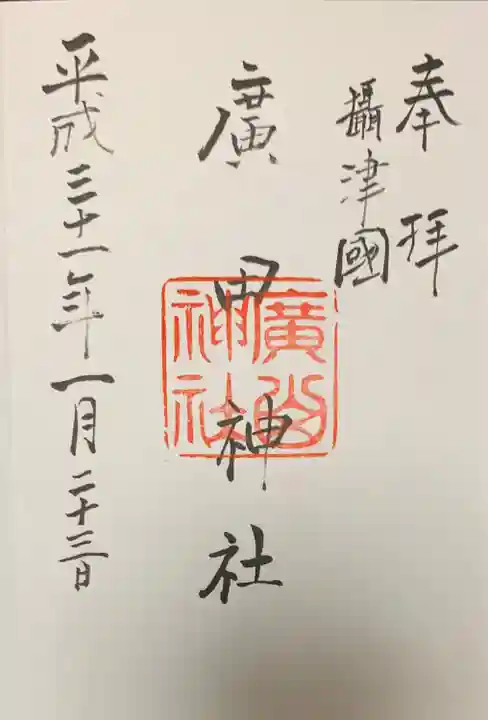 奉拝
攝津國
廣田神社
廣
神社
平成三十一年一月二十三日